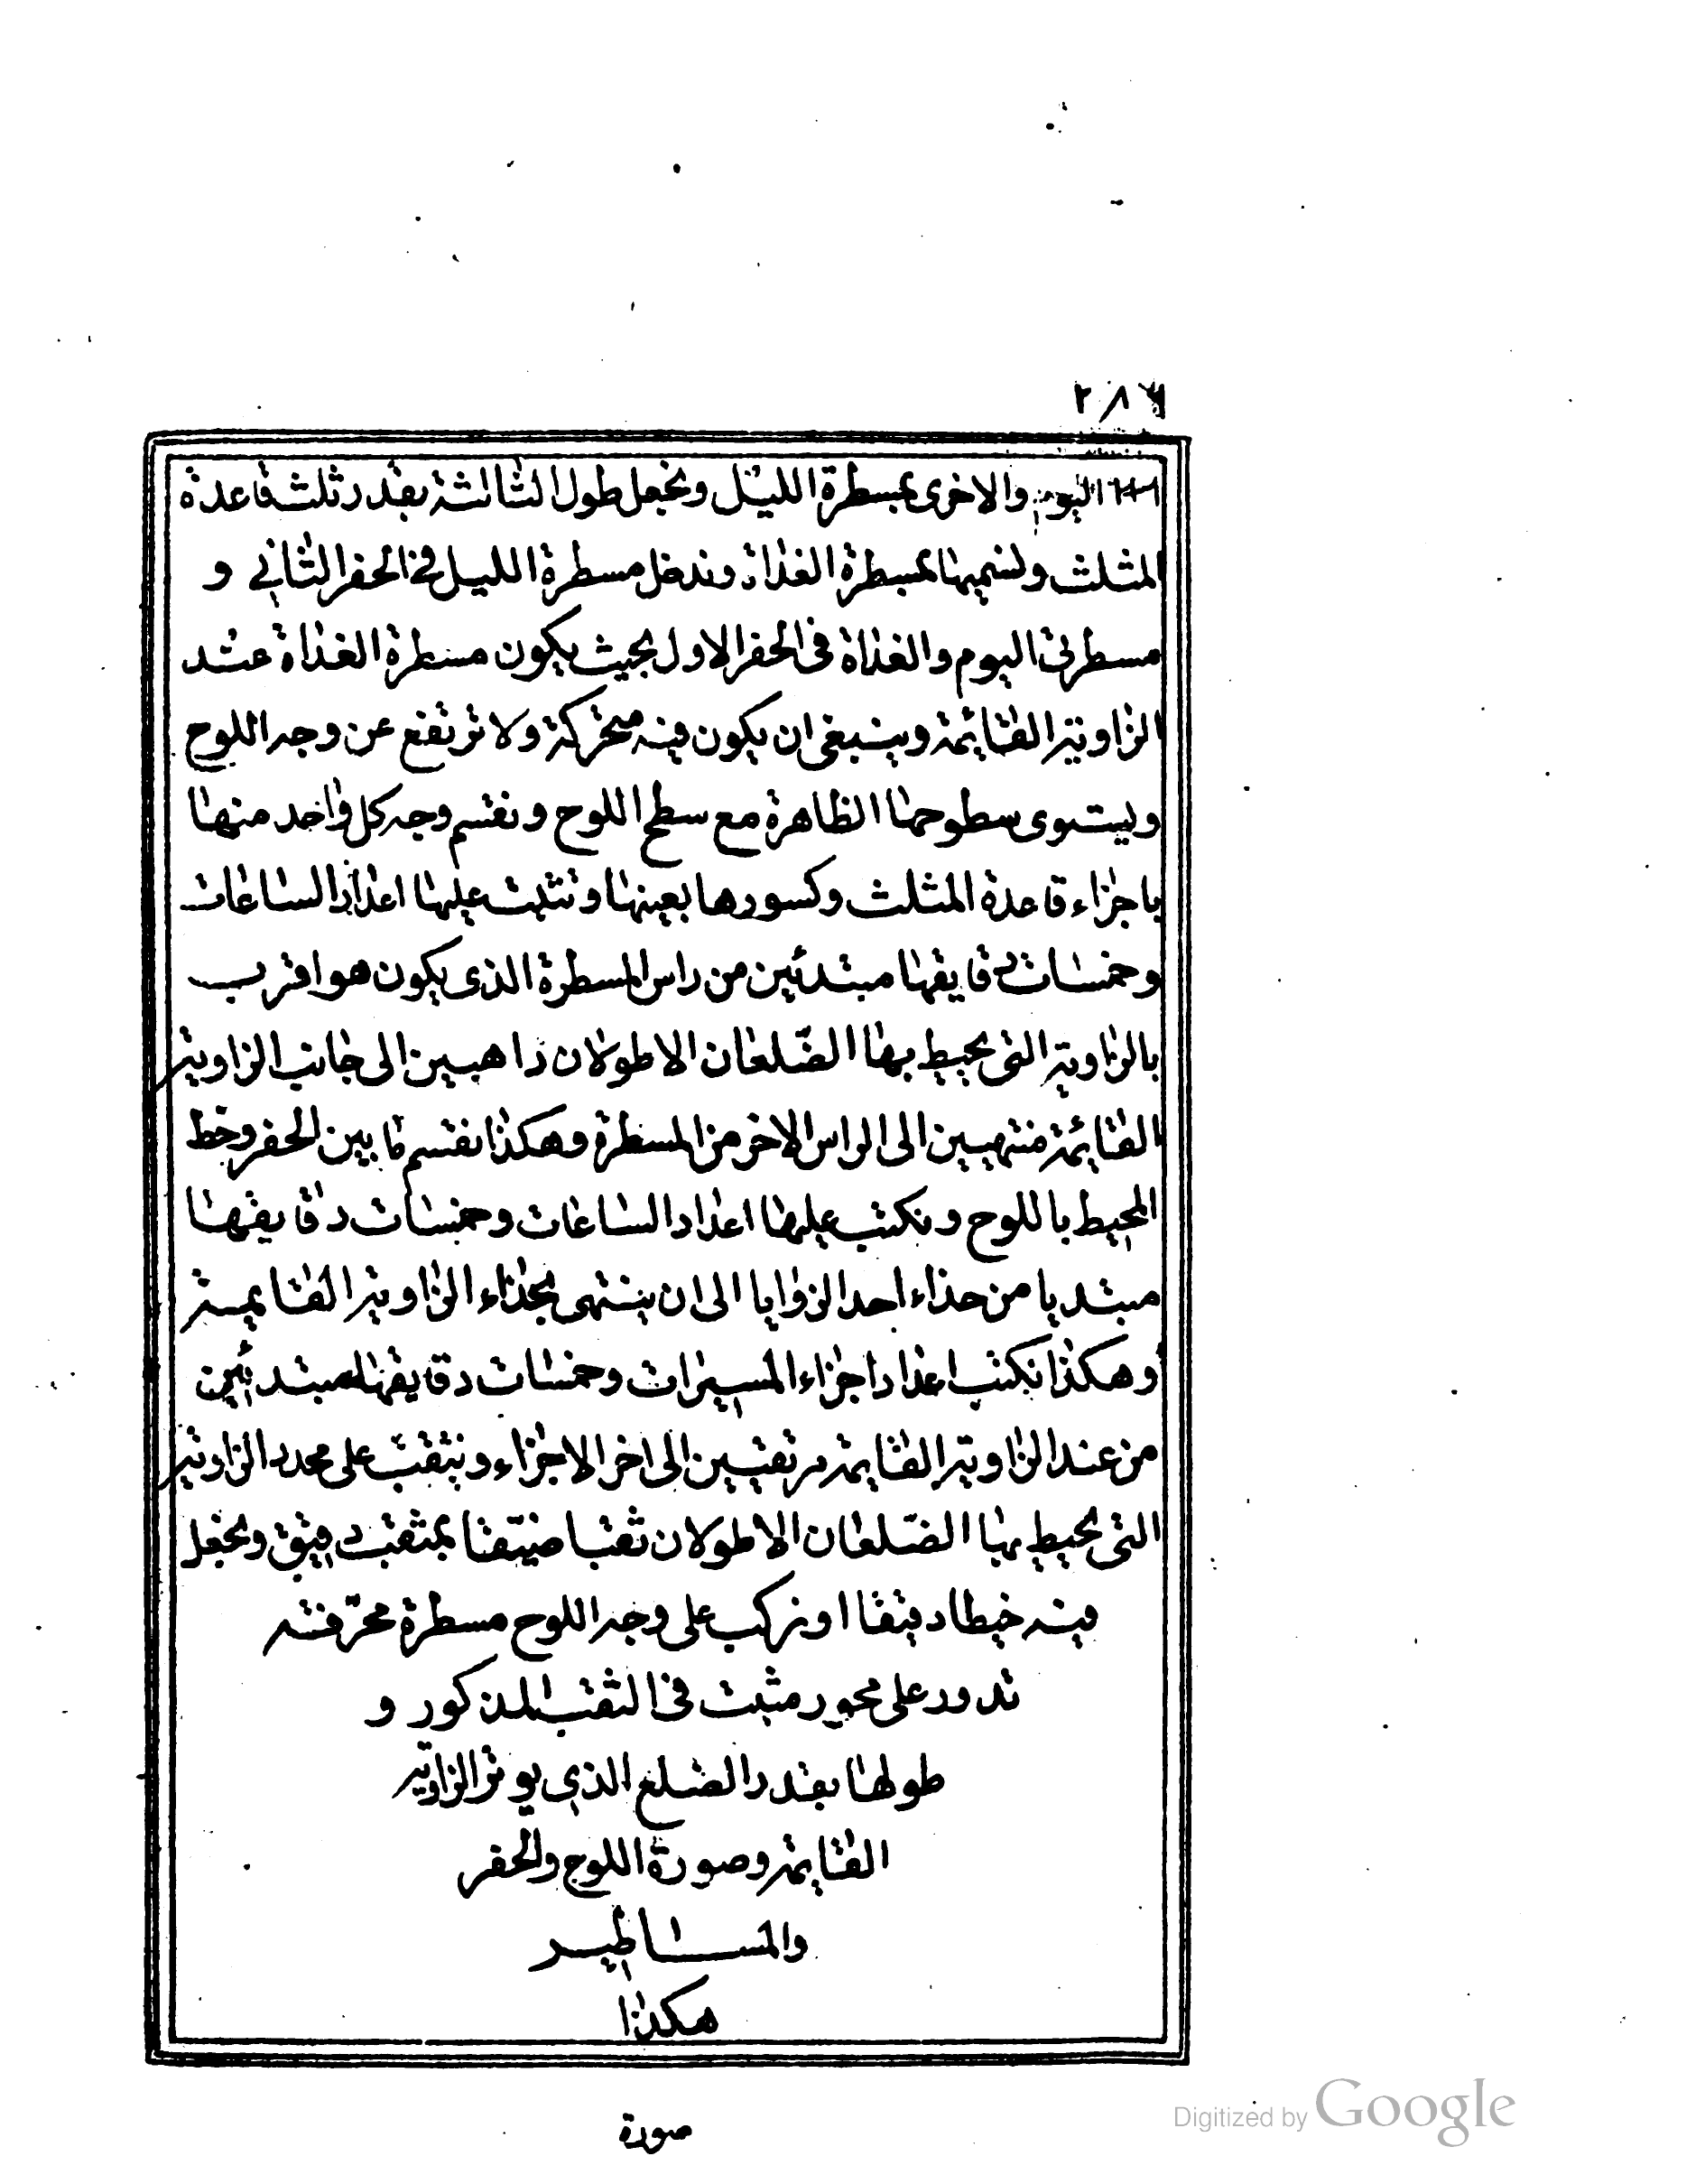 اليوم والاخرى بمسطرة الليل ونجعل طول الثالثة بقدر ثلث قاعدة
المثلث ونسميها بمسطرة الغداة وندخل مسطرة الليل في الحفر الثاني و
مسطرتي اليوم والغداة في الحفر الاول بحيث يكون مسطرة الغداة عند
الزاوية القائمة وينبغي ان يكون فيه متحركة ولا ترتفع عن وجه اللوح
ويستوى سطوحها الظاهرة مع سطح اللوح ونقسم وجه كل واحد منها
باجزاء قاعدة المثلث وكسورها بعينها ونثبت عليها اعداد الساعات
وخمسات دقايقها مبتدئين من راس المسطرة الذى يكون هو اقرب
بالزاوية التي يحيط بها الضلعان الاطولان ذاهبين الى جانب الزاوية
القائمة منتهيين الى الراس الاخر من المسطرة وهكذا نقسم ما بين الحفر وخط
المحيط باللوح ونكتب عليها اعداد الساعات وخمسات دقايقها
مبتديا من حذاء احد الزوايا الى ان ينتهى بحذاء الزاوية القايمة
وهكذا نكتب اعداد اجزاء المسيرات وخمسات دقايقها مبتدئين
من عند الزاوية القايمة مرتقين الى اخر الاجزاء ونثقب على محدد الزاوية
التي يحيط بها الضلعان الاطولان ثقبا ضيقا بمثقب دقيق ونجعل
فيه خيطا دقيقا او نركب على وجه اللوح مسطرة محرفة
تدور على محور مثبت في الثقب المذكور و
طولها بقدر الضلع الذي يوتر الزاوية
القايمة وصورة اللوح والحفر
والمساطير
هكذا
صورة
Digitized by Google